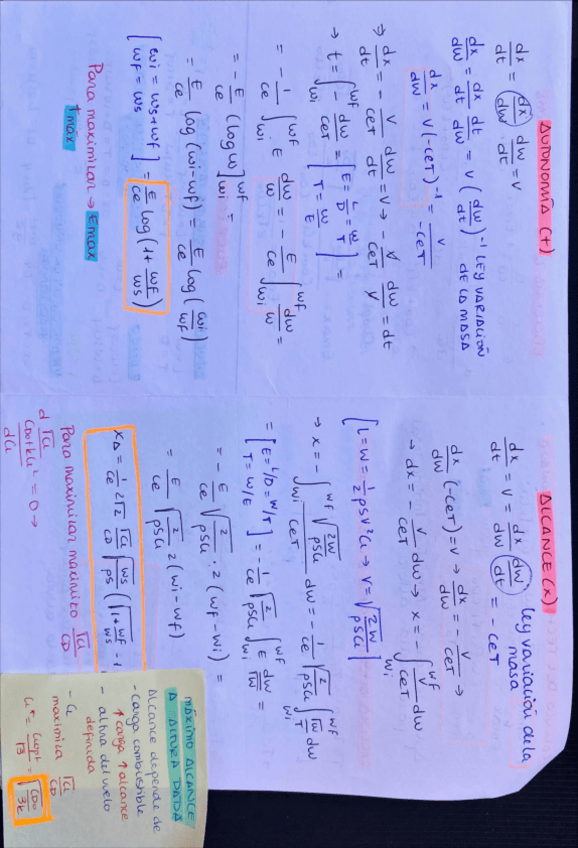 AUTONOMÍA (t)
dx/dt = (dx/dw) dw/dt = v
dx/dw = dx/dt dt/dw = v (dw/dt)^-1 LEY VARIACIÓN DE LA MASA
dx/dw = v(-ceT)^-1 = v/-ceT
⇒ dx/dt = - v/ceT dw/dt = v → - v/ceT dw/v = dt
→ t = ∫wi^wf - dw/ceT = [E = L/D = W/T, T = W/E] =
= - 1/ce ∫wi^wf E dw/w = - E/ce ∫wi^wf dw/w =
= - E/ce (log w)]wi^wf =
= E/ce log(wi-wf) = E/ce log(wi/wf)
[wi = ws+wf, wf = ws] = E/ce log(1 + wf/ws)
Para maximizar → Emax
tmáx
ALCANCE (x)
dx/dt = v = dx/dw (dw/dt) = - ceT ley variación de la masa
dx/dw (-ceT) = v → dx/dw = - v/ceT →
→ dx = - v/ceT dw → x = - ∫wi^wf v/ceT dw
[L = W = 1/2 ρSV²CL → V = √(2W/ρSCL)]
→ x = - ∫wi^wf √(2W/ρSCL)/ceT dw = - 1/ce √(2/ρSCL) ∫wi^wf √w/T dw
= [E = L/D = W/T, T = W/E] = - 1/ce √(2/ρSCL) ∫wi^wf E dw/√w =
= - E/ce √(2/ρSCL) · 2 (wf - wi) =
= E/ce √(2/ρSCL) 2 (wi - wf)
xA = 1/ce 2√2 √CL/CD √(ws/ρS) (√(1+wf/ws) - 1
Para maximizar maximizo √CL/CD
d √CL/(CD0+kCL²)/dCL = 0 →
MÁXIMO ALCANCE
A ALTURA DADA
Alcance depende de
- carga combustible
↑ carga ↑ alcance
- altura del vuelo
definida
- CL maximiza √CL/CD
CL* = CLopt/√3 = √(CD0/3k)